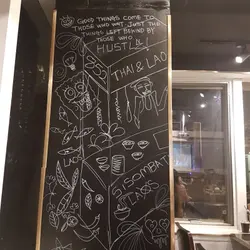 GOOD THINGS COME TO
THOSE WHO WAIT. JUST THE
THINGS LEFT BEHIND BY
THOSE WHO
HUSTLE!
THAI & LAO
LAO
SISOMBAT